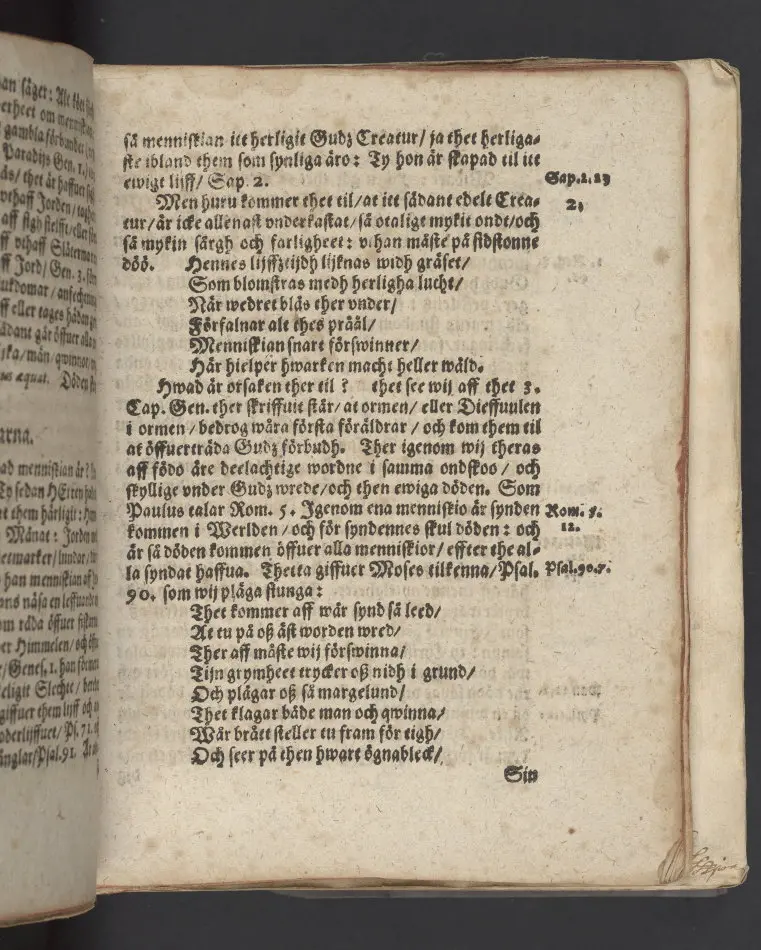 an säger: Alt kött
etheet om menniskian
gambla förbundet
Paradijs Gen. 1.
ås/ thet är haffuer
vthaff Jorden/
aff sigh sielff/ eller
ff vthaff
ff Jord/ Gen. 3.
ukdomar/
ff eller tages hädan
ådant går öffuer alla
ska/ män/ qwinnor/
us æquat. Döden
arna.
ad menniskian är?
Ty sedan HErren
t them härligit:
Månat: Jorden
etmarker/ lundar/
han menniskian aff
ns näsa en leffuande
m råda öffuer fiskom
er Himmelen/ och
/ Genes. 1. han
eligit Slechte/
giffuer them lijff och
nderlijffuet/ Ps. 71.
änglar/ Psal. 91.
så menniskian itt herligit Gudz Creatur/ ja thet herliga-
ste ibland them som synliga äro: Ty hon är skapad til itt
ewigt lijff/ Sap. 2.
Sap. 1. 13
Men huru kommer thet til/ at itt sådant edelt Crea-
2.
tur/ är icke allenast vnderkastat/ så otaligt mykit ondt/ och
så mykin särgh och farligheet: vthan måste på sidstonne
döö. Hennes lijffztijdh lijknas widh gräset/
Som blomstras medh herligha lucht/
När wedret bläs ther vnder/
Förfalnar alt thes pråål/
Menniskian snart förswinner/
Här hielper hwarken macht heller wåld.
Hwad är orsaken ther til? thet see wij aff thet 3.
Cap. Gen. ther skriffuit stär/ at ormen/ eller Dieffuulen
i ormen/ bedrog wåra första föräldrar/ och kom them til
at öffuerträda Gudz förbudh. Ther igenom wij theras
aff födo äre deelachtige wordne i samma ondskoo/ och
skyllige vnder Gudz wrede/ och then ewiga döden. Som
Paulus talar Rom. 5. Igenom ena menniskio är synden
Rom. 5.
kommen i Werlden/ och för syndennes skul döden: och
12.
är så döden kommen öffuer alla menniskior/ effter the al-
la syndat haffua. Thetta giffuer Moses tilkenna/ Psal.
Psal. 90. 7.
90. som wij pläga siunga:
Thet kommer aff wår synd så leed/
At tu på oß äst worden wred/
Ther aff måste wij förswinna/
Tijn grymheet trycker oß nidh i grund/
Och plågar oß så margelund/
Thet klagar både man och qwinna/
Wår brått steller tu fram för tigh/
Och seer på then hwart ögnableck/
Sin